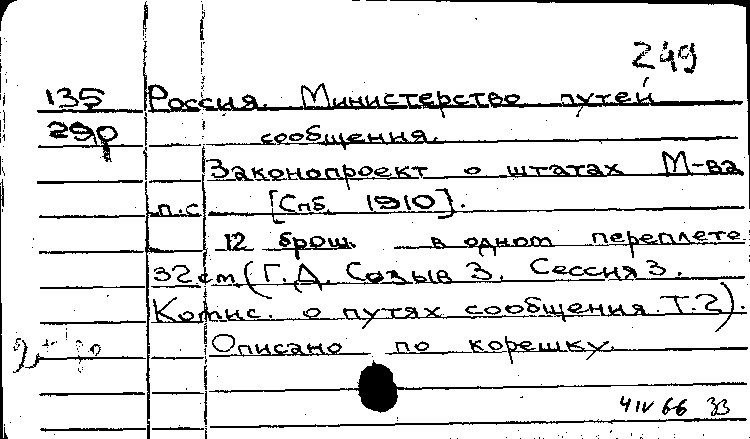 249
135 Россия. Министерство путей
29р сообщения.
Законопроект о штатах М-ва
п.с [Спб. 1910].
12 брош. в одном переплете
32 см (Г.Д. Созыв 3. Сессия 3.
Комис. о путях сообщения. Т.2).
Описано по корешку.
4 IV 66 ЗЗ